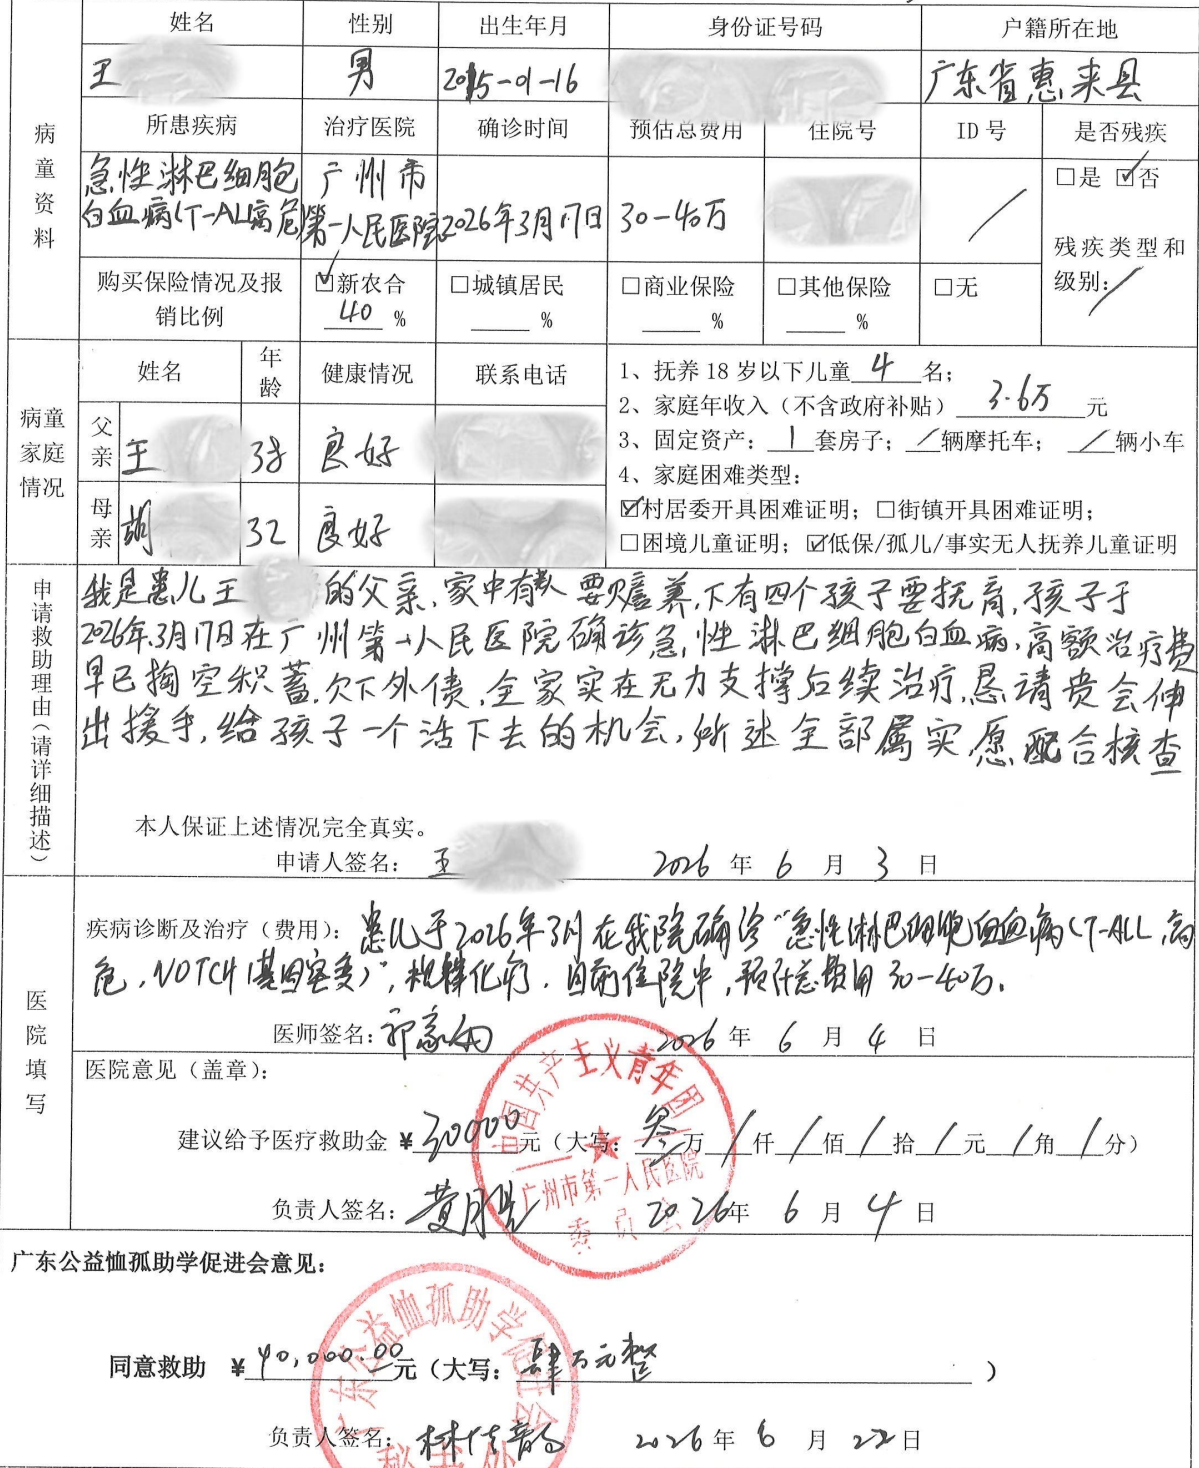 病童资料
姓名 性别 出生年月 身份证号码 户籍所在地
王 男 2015-01-16 广东省惠来县
所患疾病 治疗医院 确诊时间 预估总费用 住院号 ID号 是否残疾
急性淋巴细胞 广州市 □是 ☑否
白血病(T-ALL高危) 第一人民医院 2026年3月17日 30-40万 /
残疾类型和
级别:/
购买保险情况及报 ☑新农合 □城镇居民 □商业保险 □其他保险 □无
销比例 40 % % % %
病童家庭情况
姓名 年龄 健康情况 联系电话
父亲 王 38 良好
母亲 胡 32 良好
1、抚养18岁以下儿童4名;
2、家庭年收入(不含政府补贴)3.6万元
3、固定资产:1套房子;/辆摩托车;/辆小车
4、家庭困难类型:
☑村居委开具困难证明;□街镇开具困难证明;
□困境儿童证明;☑低保/孤儿/事实无人抚养儿童证明
申请救助理由(请详细描述)
我是患儿王 的父亲,家中有 要赡养,下有四个孩子要抚育,孩子于
2026年3月17日在广州第一人民医院确诊急性淋巴细胞白血病,高额治疗费
早已掏空积蓄,欠下外债,全家实在无力支撑后续治疗,恳请贵会伸
出援手,给孩子一个活下去的机会,所述全部属实,愿配合核查
本人保证上述情况完全真实。
申请人签名:王 2026年6月3日
医院填写
疾病诊断及治疗(费用):患儿于2026年3月在我院确诊“急性淋巴细胞白血病(T-ALL,高
危,NOTCH1基因突变)”,规律化疗,目前住院中,预计总费用30-40万。
医师签名: 2026年6月4日
医院意见(盖章):
建议给予医疗救助金¥30000元(大写:叁万/仟/佰/拾/元/角/分)
负责人签名: 2026年6月4日
中国共产主义青年团
广州市第一人民医院
委员会
广东公益恤孤助学促进会意见:
同意救助 ¥40,000.00元(大写:肆万元整)
负责人签名: 2026年6月22日
广东公益恤孤助学促进会
秘书处